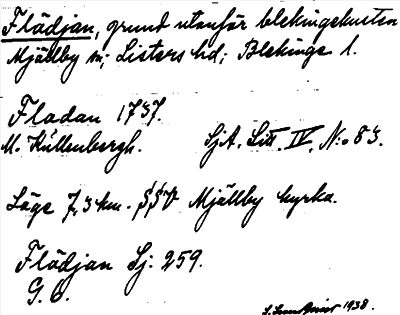 Flädjan, grund utanför blekingekusten
Mjällby sn; Listers hd; Blekinge l.
Fladan 1737.
M. Küllenbergh. SjA. Litt. IV. N:o 83.
Läge 7,3 km. SSV Mjällby kyrka.
Flädjan Sj. 259.
G. O.
1938.